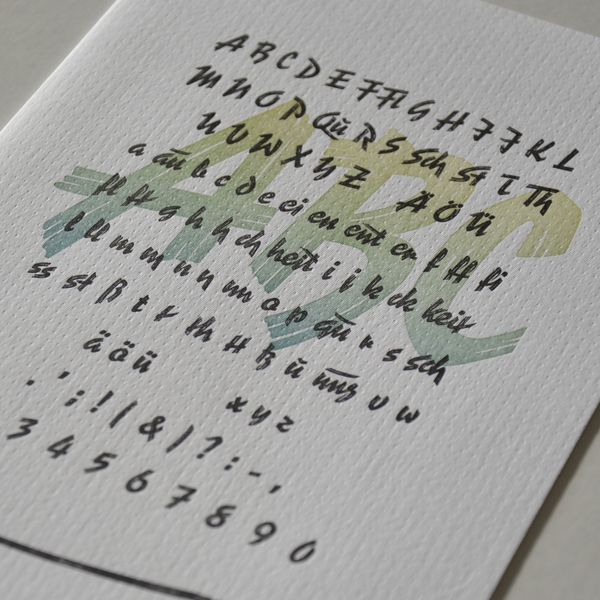 A B C D E F Fl G H I J K L
M N O P Qu R S Sch St T Th
U V W X Y Z Ä Ö Ü
a au b c d e ei en ent er f ff fi
fl ft g h h ch heit i j k ck keit
l ll m m n n nn o p qu r s sch
ss st ß t t th tt tz ü ung v w
ä ö ü x y z
. ' ; ! ( & ) ? : - ,
3 4 5 6 7 8 9 0
ABC